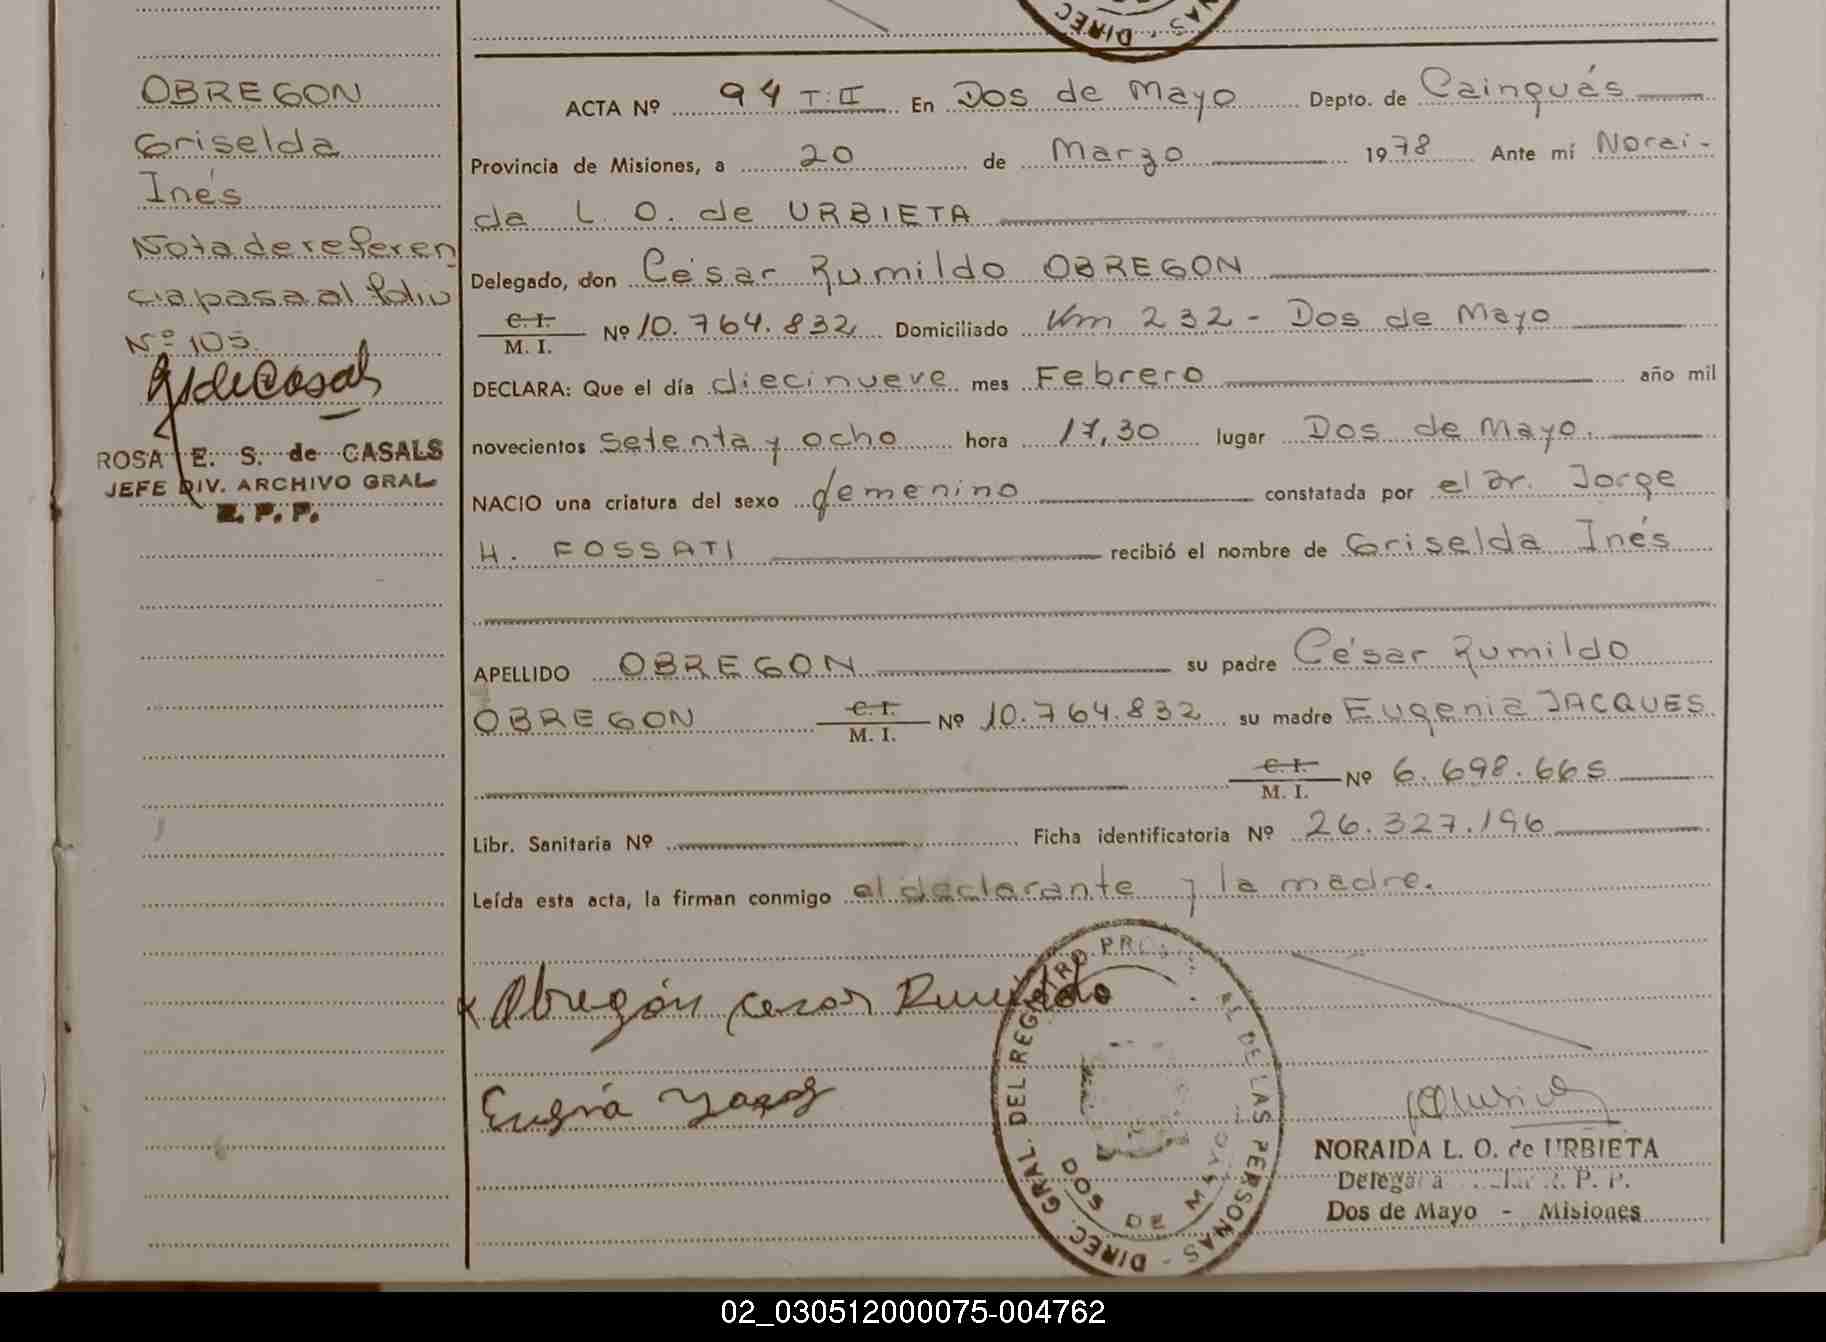 DIREC. NAS -
OBREGON
Griselda
Inés
Nota de referen
cia pasa al folio
Nº 105.
ROSA E. S. de CASALS
JEFE DIV. ARCHIVO GRAL
R. P. P.
ACTA Nº 94 T: II En Dos de Mayo Depto. de Cainguás
Provincia de Misiones, a 20 de Marzo 1978 Ante mí Norai-
da L. O. de URBIETA
Delegado, don César Rumildo OBREGON
C. I.
M. I. Nº 10.764.832 Domiciliado Km 232 - Dos de Mayo
DECLARA: Que el día diecinueve mes Febrero año mil
novecientos setenta y ocho hora 17,30 lugar Dos de Mayo.
NACIO una criatura del sexo femenino constatada por el Dr. Jorge
H. FOSSATI recibió el nombre de Griselda Inés
APELLIDO OBREGON su padre César Rumildo
OBREGON C. I.
M. I. Nº 10.764.832 su madre Eugenia JACQUES
C. I.
M. I. Nº 6.698.665
Libr. Sanitaria Nº Ficha identificatoria Nº 26.327.196
Leída esta acta, la firman conmigo el declarante y la madre.
Obregón Cesar Rumildo
DIREC. GRAL. DEL REGISTRO PROV AL DE LAS PERSONAS -
DOS DE MAYO
NORAIDA L. O. de URBIETA
Delegada R. P. P.
Dos de Mayo - Misiones
02_030512000075-004762